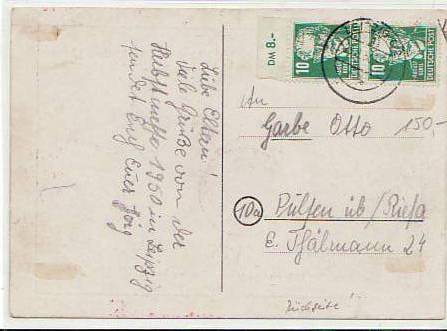 Liebe Eltern!
viele Grüße von der
Herbstmesse 1950 in Leipzig
sendet Euch Euer
DM 8.-
10
DEUTSCHE POST
10
DEUTSCHE POST
An
Garbe Otto 150,-
10a
üb/Riesa
E. Thälmann 24
Rückseite!